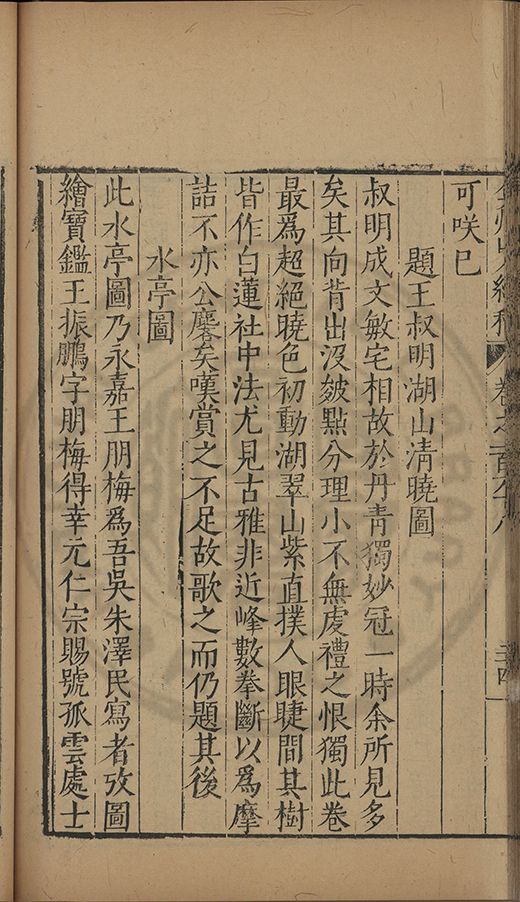 可咲已
題王叔明湖山清曉圖
叔明成文敏宅相故於丹青獨妙冠一時余所見多
矣其向背出沒皴點分理小不無虔禮之恨獨此卷
最爲超絕曉色初動湖翠山紫直撲人眼睫間其樹
皆作白蓮社中法尤見古雅非近峰數拳斷以爲摩
詰不亦公麐矣嘆賞之不足故歌之而仍題其後
水亭圖
此水亭圖乃永嘉王朋梅爲吾吳朱澤民寫者攷圖
繪寶鑑王振鵬字朋梅得幸元仁宗賜號孤雲處士